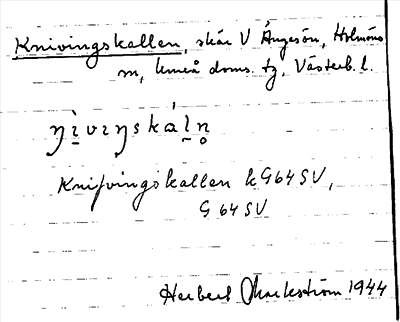 Knivingskallen, skär V Ängesön, Holmöns
sn, Umeå doms. tg, Västerb. l.
ŋì̠vıŋskál̠n̥
Knifvingskallen kG64SV,
G 64 SV
Herbert Markström 1944